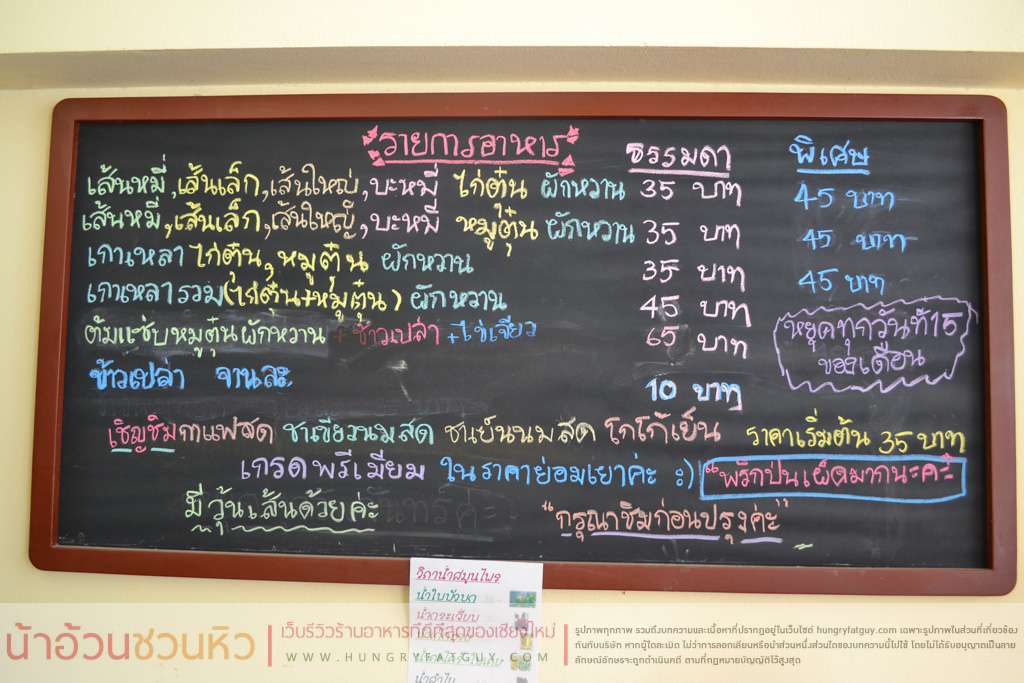 รายการอาหาร ธรรมดา พิเศษ
เส้นหมี่,เส้นเล็ก,เส้นใหญ่,บะหมี่ ไก่ตุ๋น ผักหวาน 35 บาท 45 บาท
เส้นหมี่,เส้นเล็ก,เส้นใหญ่,บะหมี่ หมูตุ๋น ผักหวาน 35 บาท 45 บาท
เกาเหลา ไก่ตุ๋น,หมูตุ๋น ผักหวาน 35 บาท 45 บาท
เกาเหลารวม(ไก่ตุ๋น+หมูตุ๋น) ผักหวาน 45 บาท
ต้มแซ่บหมูตุ๋นผักหวาน + ข้าวเปล่า +ไข่เจียว 65 บาท
หยุดทุกวันที่15
ของเดือน
ข้าวเปล่า จานละ 10 บาท
เชิญชิมกาแฟสด ชาเขียวนมสด ชาเย็นนมสด โกโก้เย็น ราคาเริ่มต้น 35 บาท
เกรดพรีเมียม ในราคาย่อมเยาค่ะ :) "พริกป่นเผ็ดมากนะคะ"
มีวุ้นเส้นด้วยค่ะ "กรุณาชิมก่อนปรุงค่ะ"
น้ำใบบัวบก
น้ำกระเจี๊ยบ
น้ำลำไย
น้าอ้วนชวนหิว
เว็บรีวิวร้านอาหารที่ดีที่สุดของเชียงใหม่
WWW.HUNGRYFATGUY.COM
รูปภาพทุกภาพ รวมถึงบทความและเนื้อหาที่ปรากฏอยู่ในเว็บไซต์ hungryfatguy.com เฉพาะรูปภาพในส่วนที่เกี่ยวข้อง
กับทางบริษัท หากผู้ใดละเมิด ไม่ว่าการลอกเลียนหรือนำส่วนหนึ่งส่วนใดของบทความนี้ไปใช้ โดยไม่ได้รับอนุญาตเป็นลาย
ลักษณ์อักษรจะถูกดำเนินคดี ตามที่กฎหมายบัญญัติไว้สูงสุด